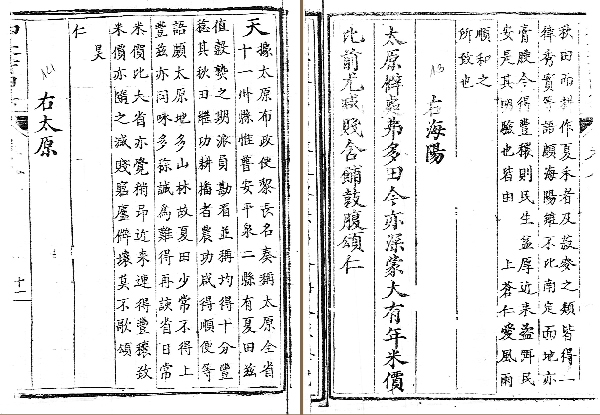 秋田而耕作夏禾者及菽麥之類皆得一
律秀實等語顧海陽雖不比南定而地亦
膏腴今得豐穰則民生益厚近來盜弭民
安是其明驗也若由 上蒼仁愛風雨
順和之
所致也
右海陽
13
太原僻處弗多田今亦深蒙大有年米價
比前尤減賤含餔鼓腹頌仁
天據太原布政使黎長名奏稱太原全省
十一州縣惟普安平泉二縣有夏田茲
值穀熟之期派員勘看並稱均得十分豐
稔其秋田繼功耕播者農功咸得順便等
語顧太原地多山林故夏田少常不得上
豐茲亦同咏多稌誠為難得再該省日常
米價比大省亦覺稍昂近來連得豐穰致
米價亦隨之減賤窮僻壤莫不歌頌
昊
仁
右太原
14
十一